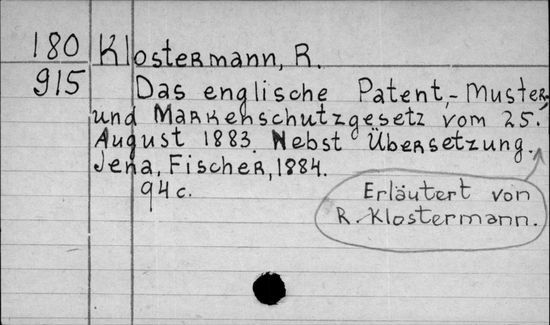 180 Klostermann, R.
915 Das englische Patent,- Muster-
und Markenschutzgesetz vom 25.
August 1883. Nebst Übersetzung.
Jena, Fischer, 1884.
94 c.
Erläutert von
R. Klostermann.